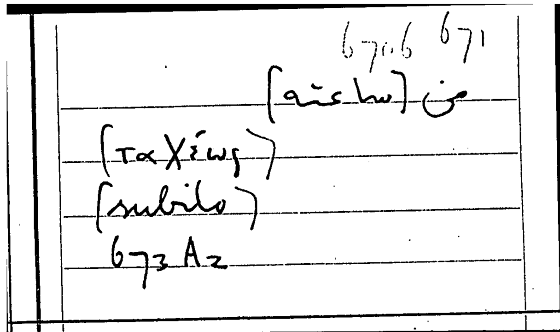 670.6 671
من [ساعته]
[ταχέως]
[subito]
673 A2